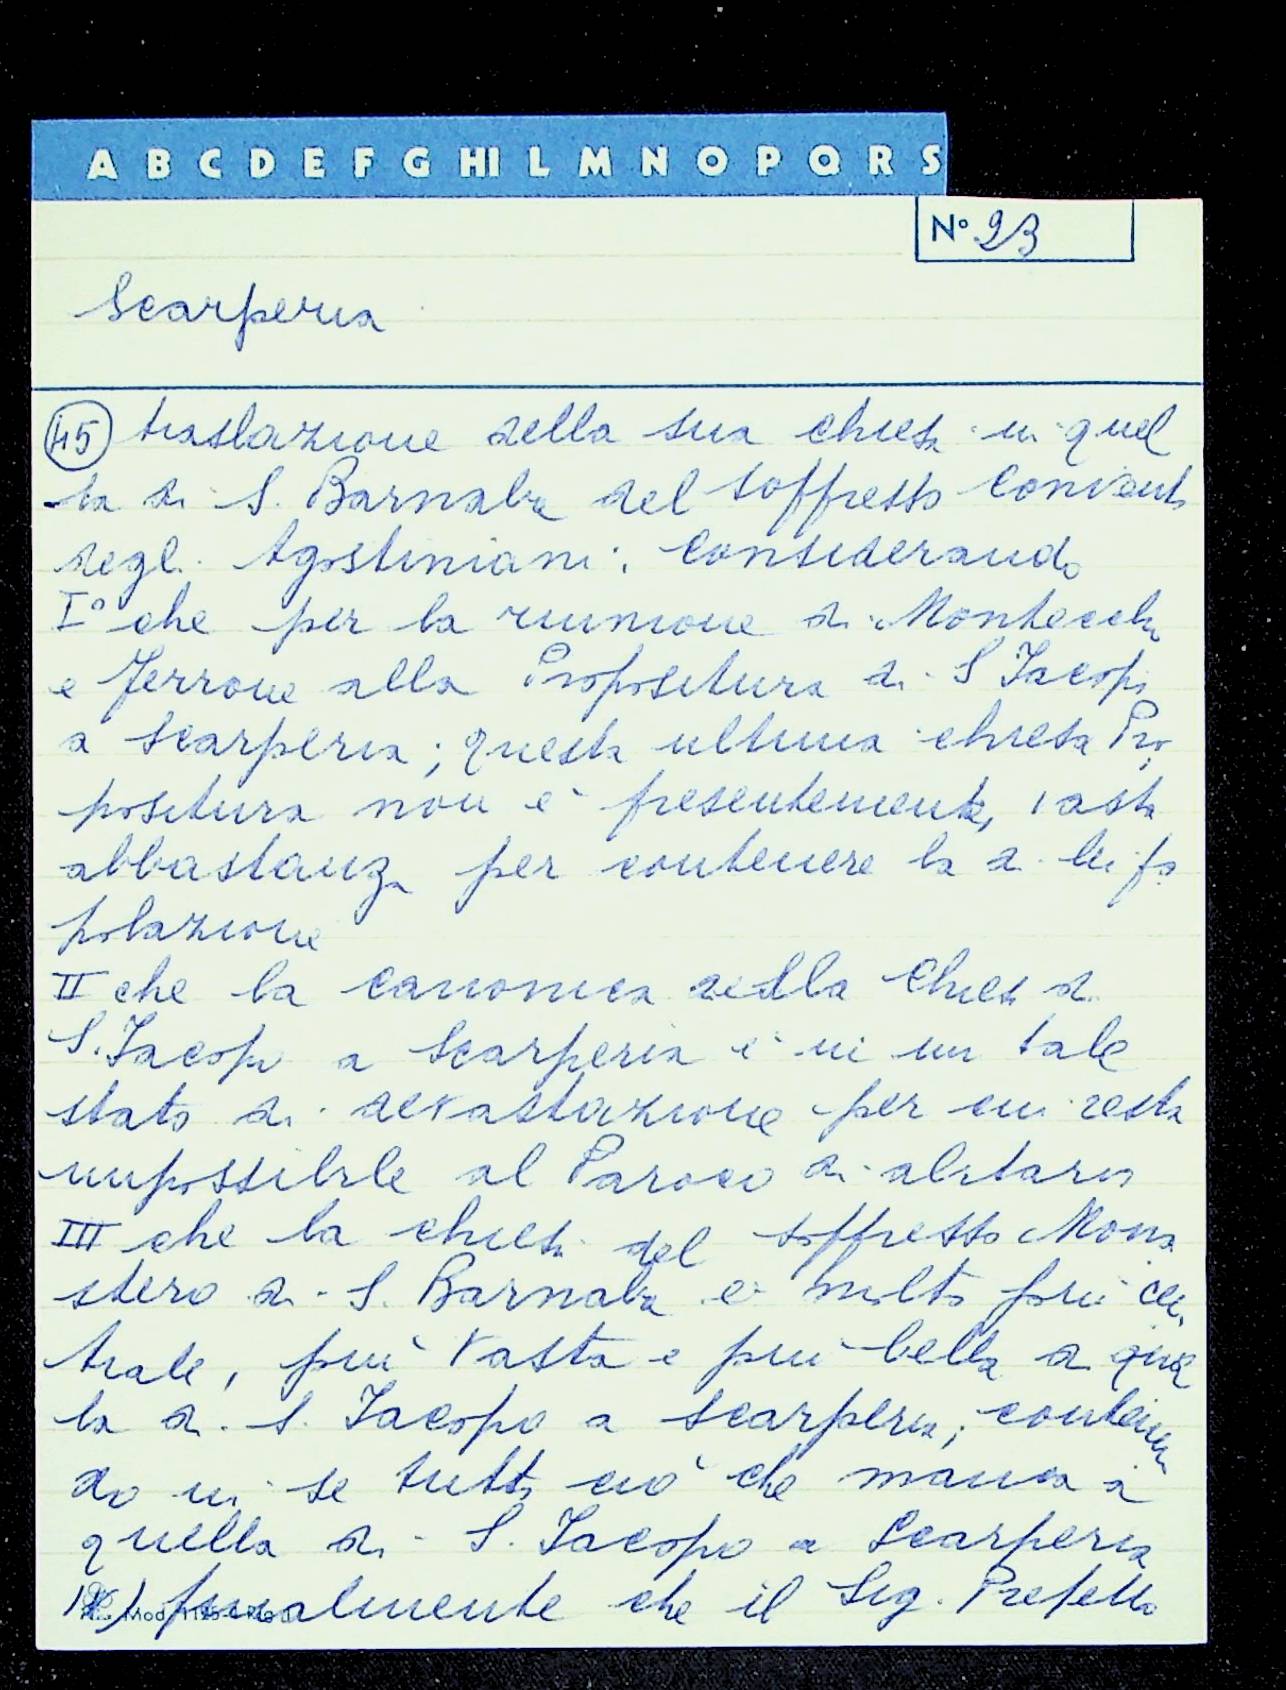 A B C D E F G HI L M N O P Q R S
N° 23
Scarperia
45 traslazione della sua chiesa in quel
la di S. Barnaba del soppresso Convento
degli Agostiniani: Considerando
I° che per la riunione di Montecchi
e Ferrone alla Propositura di S Iacopo
a Scarperia; questa ultima chiesa Pro
positura non è presentemente, vasta
abbastanza per contenere la di lui po
polazione
II che la canonica della Chiesa di
S. Iacopo a Scarperia è in un tale
stato di devastazione per cui resta
impossibile al Paroco di abitarvi
III che la chiesa del soppresso Mona
stero di S. Barnaba è molto più cen
trale, più vasta e più bella di quel
la di S. Iacopo a Scarperia; contenen
do in se tutto ciò che manca a
quella di S. Iacopo a Scarperia
finalmente che il Sig. Prefetto